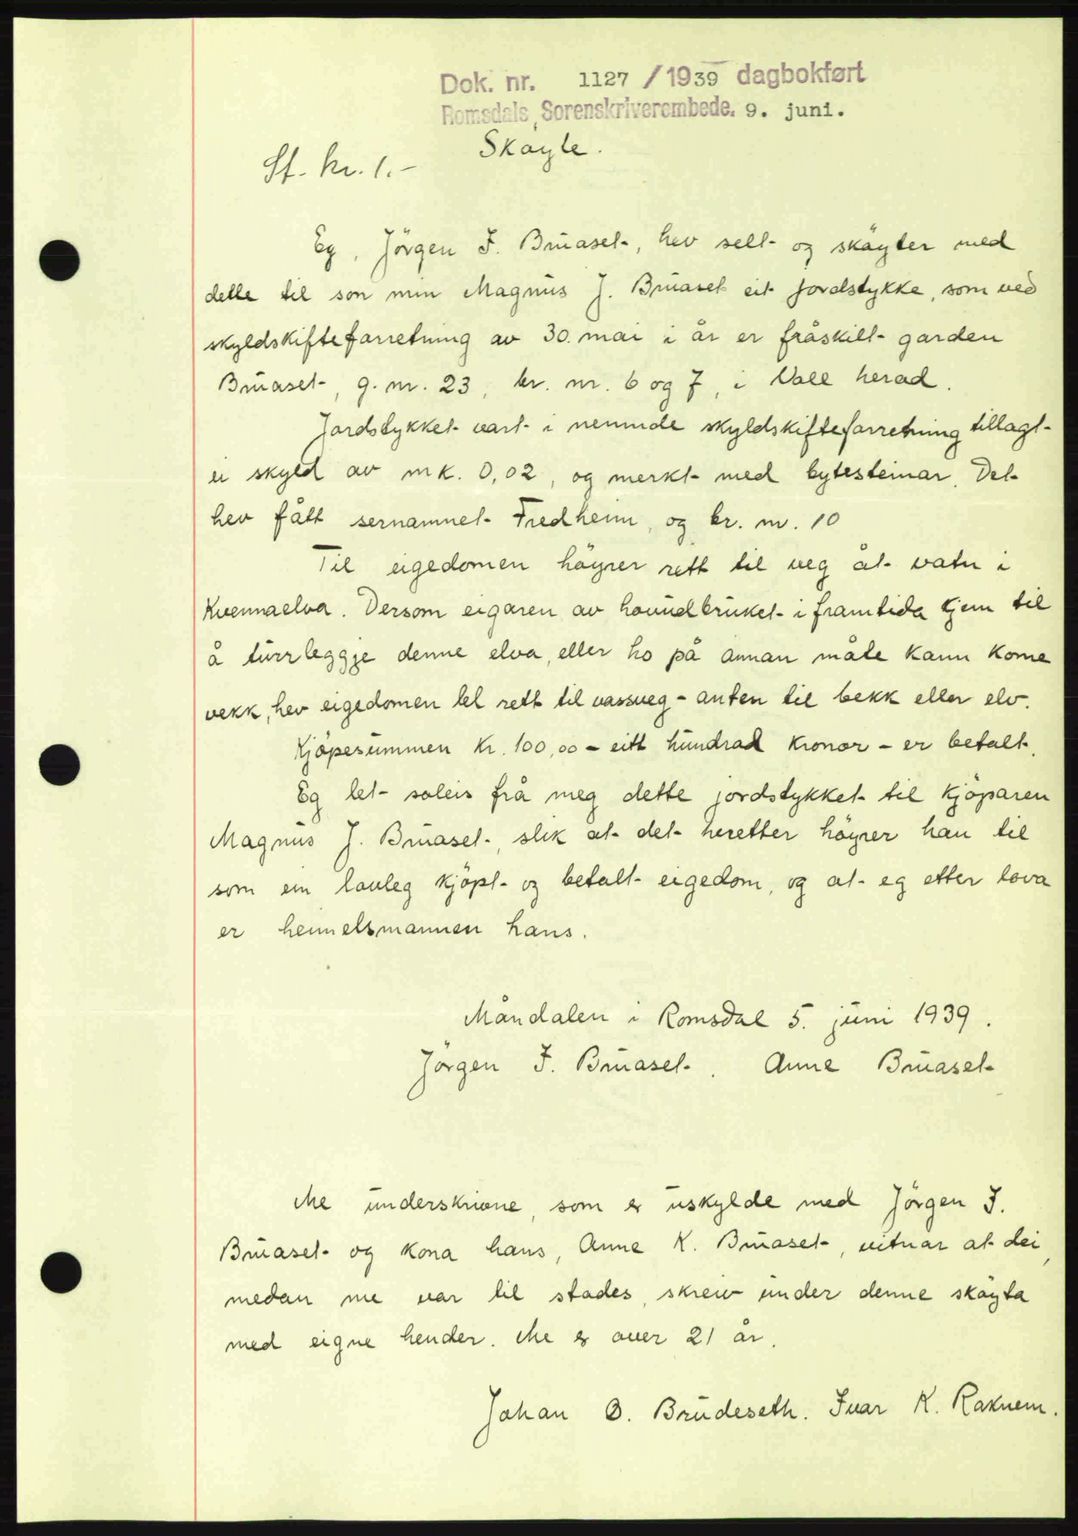 Dok. nr. 1127 / 1939 dagbokført
Romsdals Sorenskriverembede. 9. juni.
Skøyte.
St. kr. 1.-
Eg, Jörgen J. Brüaset, hev selt og skøyter med
dette til son min Magnus J. Brüaset eit jordstykke, som ved
skyldskifteforretning av 30. mai i år er fråskilt garden
Brüaset, g. nr. 23, br. nr. 6 og 7, i Voll herad.
Jordstykket vart i nemnde skyldskifteforretning tillagt
ei skyld av mk. 0,02, og merkt med bytesteinar. Det
hev fått sernamnet Fredheim, og br. nr. 10
Til eigedomen höyrer rett til veg åt vatn i
Kvennaelva. Dersom eigaren av hovüdbruket i framtida kjem til
å türrleggje denne elva, eller ho på annan måte kann kome
vekk, hev eigedomen lel rett til vassveg - anten til bekk eller elv.
Kjöpesümmen kr. 100,00 - eitt hündrad kronor - er betalt.
Eg let soleis frå meg dette jordstykket til kjöparen
Magnüs J. Brüaset, slik at det heretter höyrer han til
som ein lovleg kjöpt og betalt eigedom, og at eg etter lova
er heimelsmannen hans.
Måndalen i Romsdal 5. jüni 1939.
Jörgen J. Brüaset. Anne Brüaset
Me ünderskrivne, som er üskylde med Jörgen J.
Brüaset og kona hans, Anne K. Brüaset, vitnar at dei,
medan me var til stades, skreiv ünder denne skøyta
med eigne hender. Me er over 21 år.
Johan O. Brüdeseth. Ivar K. Raknem.